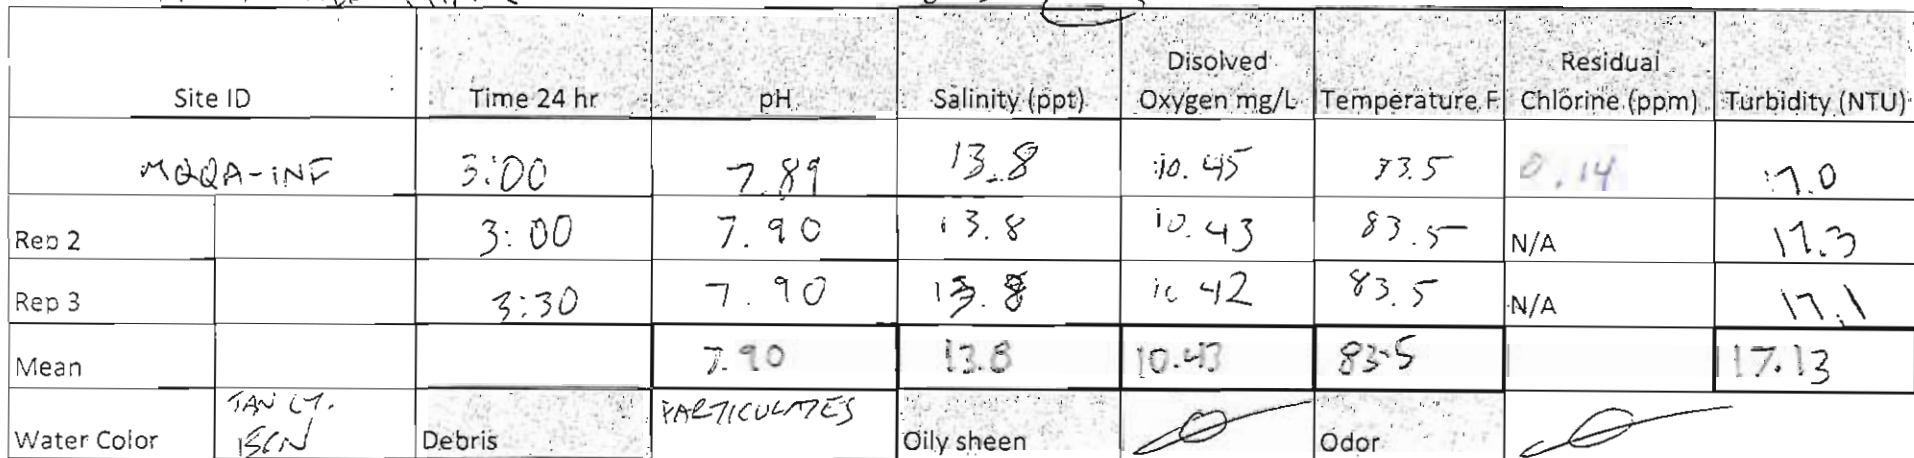 Site ID Time 24 hr pH Salinity (ppt) Disolved Oxygen mg/L Temperature F Residual Chlorine (ppm) Turbidity (NTU)
MQQA-INF 3:00 7.89 13.8 10.45 83.5 0.14 17.0
Rep 2 3:00 7.90 13.8 10.43 83.5 N/A 17.3
Rep 3 3:30 7.90 13.8 10.42 83.5 N/A 17.1
Mean 7.90 13.8 10.43 83.5 17.13
Water Color TAN LT. Debris PARTICULATES Oily sheen Odor